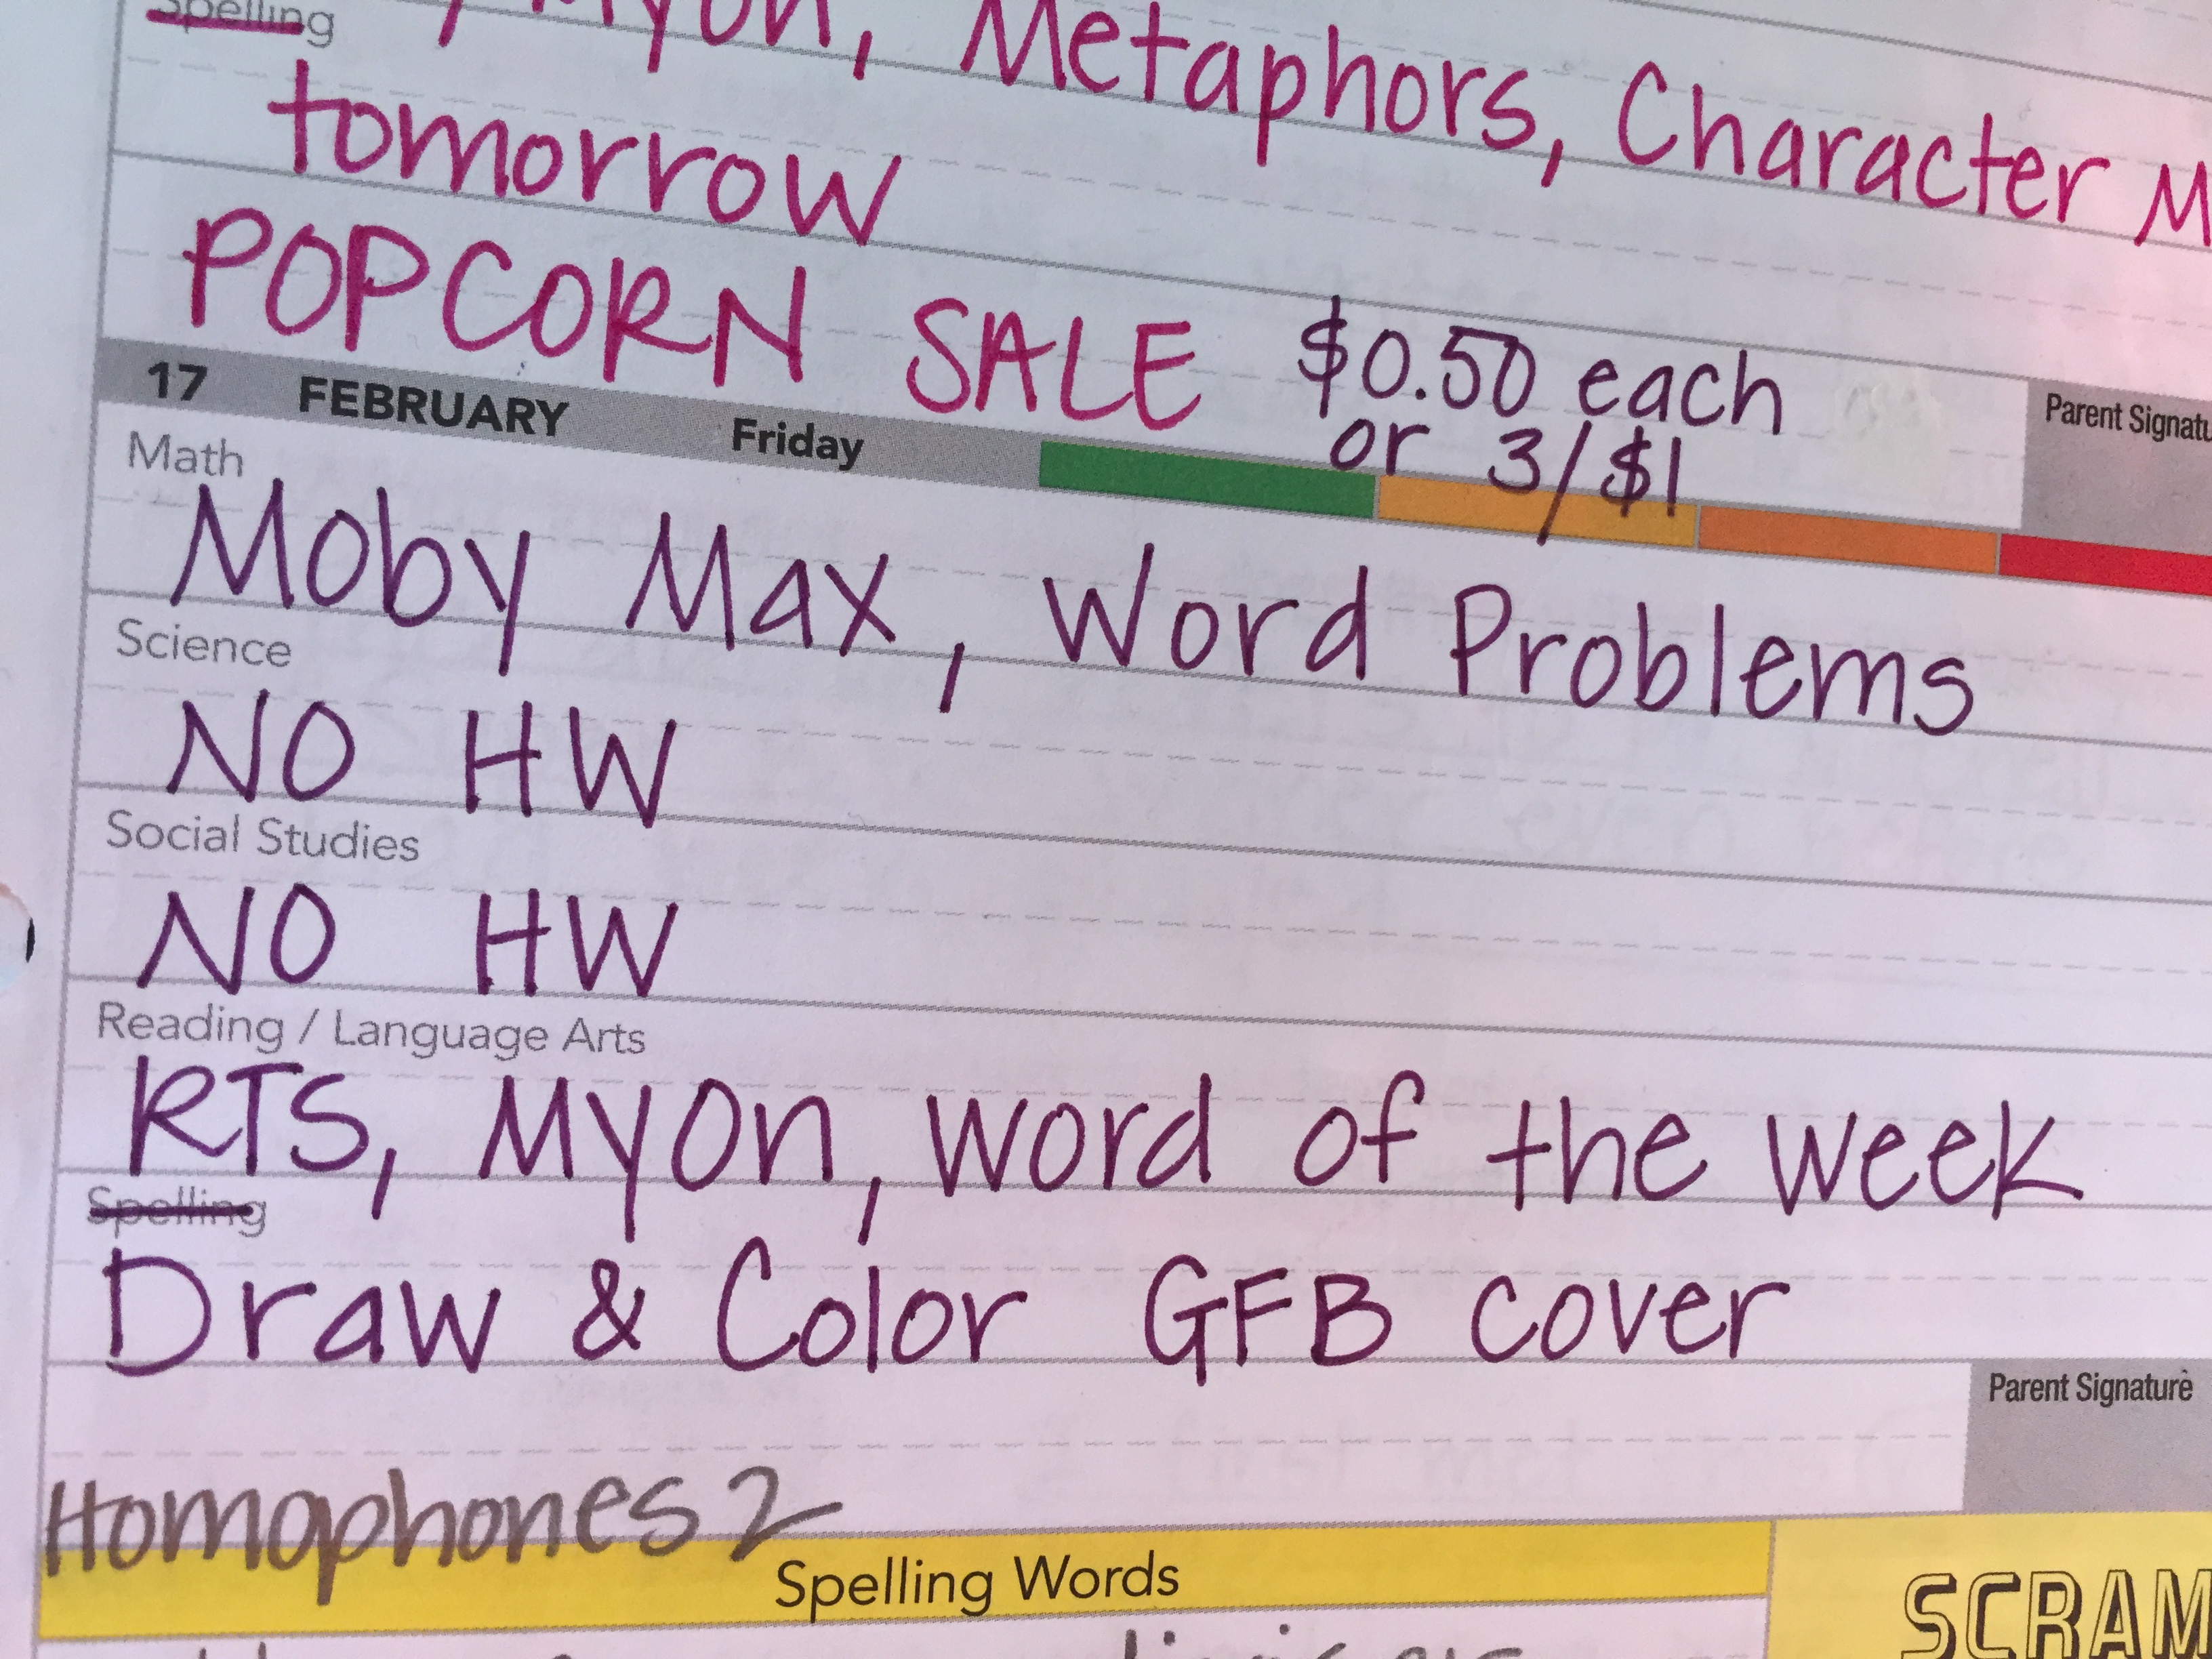 Spelling
Myon, Metaphors, Character M
tomorrow
POPCORN SALE $0.50 each
or 3/$1
Parent Signatu
17 FEBRUARY Friday
Math
Moby Max, Word Problems
Science
NO HW
Social Studies
NO HW
Reading / Language Arts
RTS, MyOn, Word of the Week
Spelling
Draw & Color GFB cover
Parent Signature
Homophones 2
Spelling Words
SCRAM